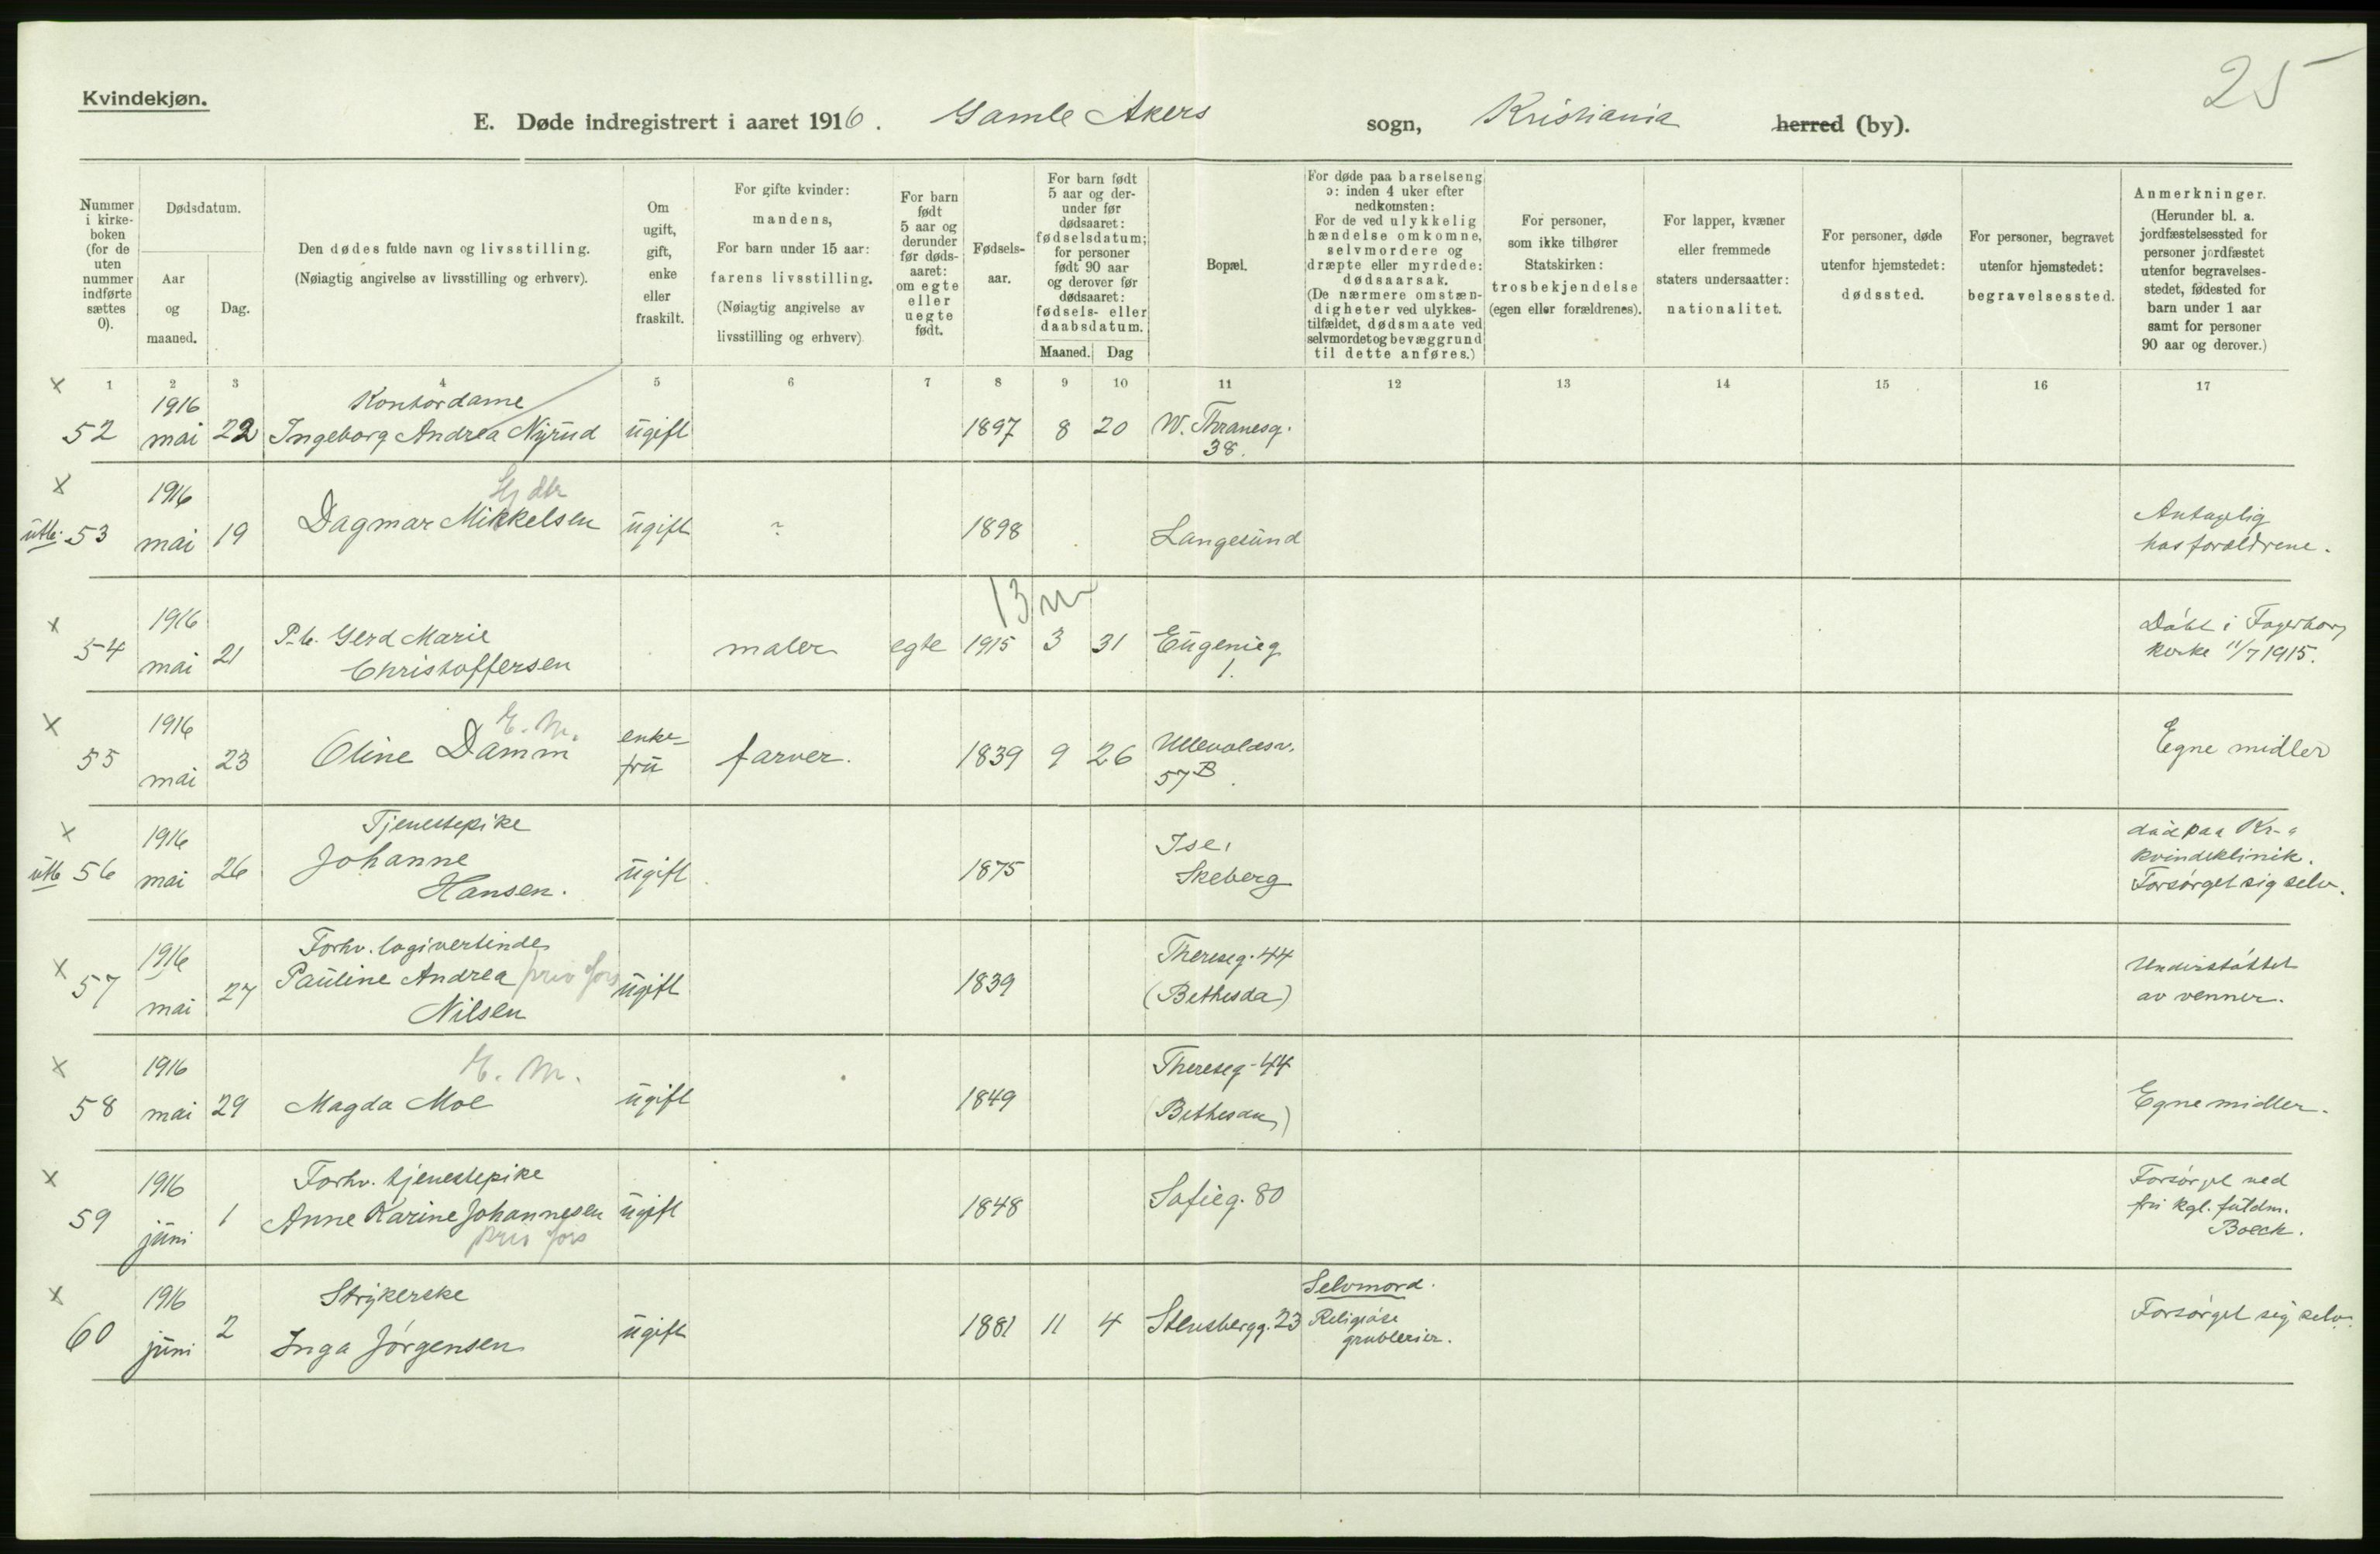 25
Kvindekjøn.
E. Døde indregistrert i aaret 1916. Gamle Akers sogn, Kristiania herred (by).
Nummer i kirkeboken (for de uten nummer indførte sættes 0).
Dødsdatum.
Aar og maaned.
Dag.
Den dødes fulde navn og livsstilling.
(Nøiagtig angivelse av livsstilling og erhverv).
Om ugift, gift, enke eller fraskilt.
For gifte kvinder: mandens, For barn under 15 aar: farens livsstilling.
(Nøiagtig angivelse av livsstilling og erhverv)
For barn født 5 aar og derunder før dødsaaret: om egte eller uegte født.
Fødselsaar.
For barn født 5 aar og derunder før dødsaaret: fødselsdatum; for personer født 90 aar og derover før dødsaaret: fødsels- eller daabsdatum.
Maaned. Dag
Bopæl.
For døde paa barselseng ɔ: inden 4 uker efter nedkomsten: For de ved ulykkelig hændelse omkomne, selvmordere og dræpte eller myrdede: dødsaarsak.
(De nærmere omstændigheter ved ulykkestilfældet, dødsmaate ved selvmordet og bevæggrund til dette anføres.)
For personer, som ikke tilhører Statskirken: trosbekjendelse (egen eller forældrenes).
For lapper, kvæner eller fremmede staters undersaatter: nationalitet.
For personer, døde utenfor hjemstedet: dødssted.
For personer, begravet utenfor hjemstedet: begravelsessted.
Anmerkninger.
(Herunder bl. a. jordfæstelsessted for personer jordfæstet utenfor begravelsesstedet, fødested for barn under 1 aar samt for personer 90 aar og derover.)
1 2 3 4 5 6 7 8 9 10 11 12 13 14 15 16 17
x 1916 Kontordame
52 mai 22 Ingeborg Andrea Nyrud ugift 1897 8 20 W. Thranesg.
38.
x 1916
utb. 53 mai 19 Dagmar Mikkelsen ugift ? 1898 Langesund Antagelig
hos forældrene.
13 m
x 1916 P.b. Gerd Marie
54 mai 21 Christoffersen maler egte 1915 3 31 Eugenieg 1. Døbt i Fagerborg
kirke 11/7 1915.
x 1916 E. M.
55 mai 23 Oline Damm enke-
fru farver. 1839 9 26 Ullevoldsv.
57B. Egne midler
x 1916 Tjenestepike
utb 56 mai 26 Johanne
Hansen. ugift 1875 Ise,
Skeberg død paa Kr-a
kvindeklinik.
Forsørget sig selv.
x 1916 Forhv. logivertinde
57 mai 27 Pauline Andrea priv fors
Nilsen ugift 1839 Thereseg. 44
(Bethesda) Understøttet
av venner.
x 1916 E. M.
58 mai 29 Magda Moe ugift 1849 Thereseg - 44
(Bethesda) Egne midler.
x 1916 Forhv. tjenestepike
59 juni 1 Anne Karine Johannesen
priv fors ugift 1848 Sofieg. 80 Forsørget ved
fru kgl. fuldm.
Boeck.
x 1916 Strykerske
60 juni 2 Inga Jørgensen ugift 1881 11 4 Stensbergg. 23 Selvmord.
Religiøse
grublerier. Forsørget sig selv.